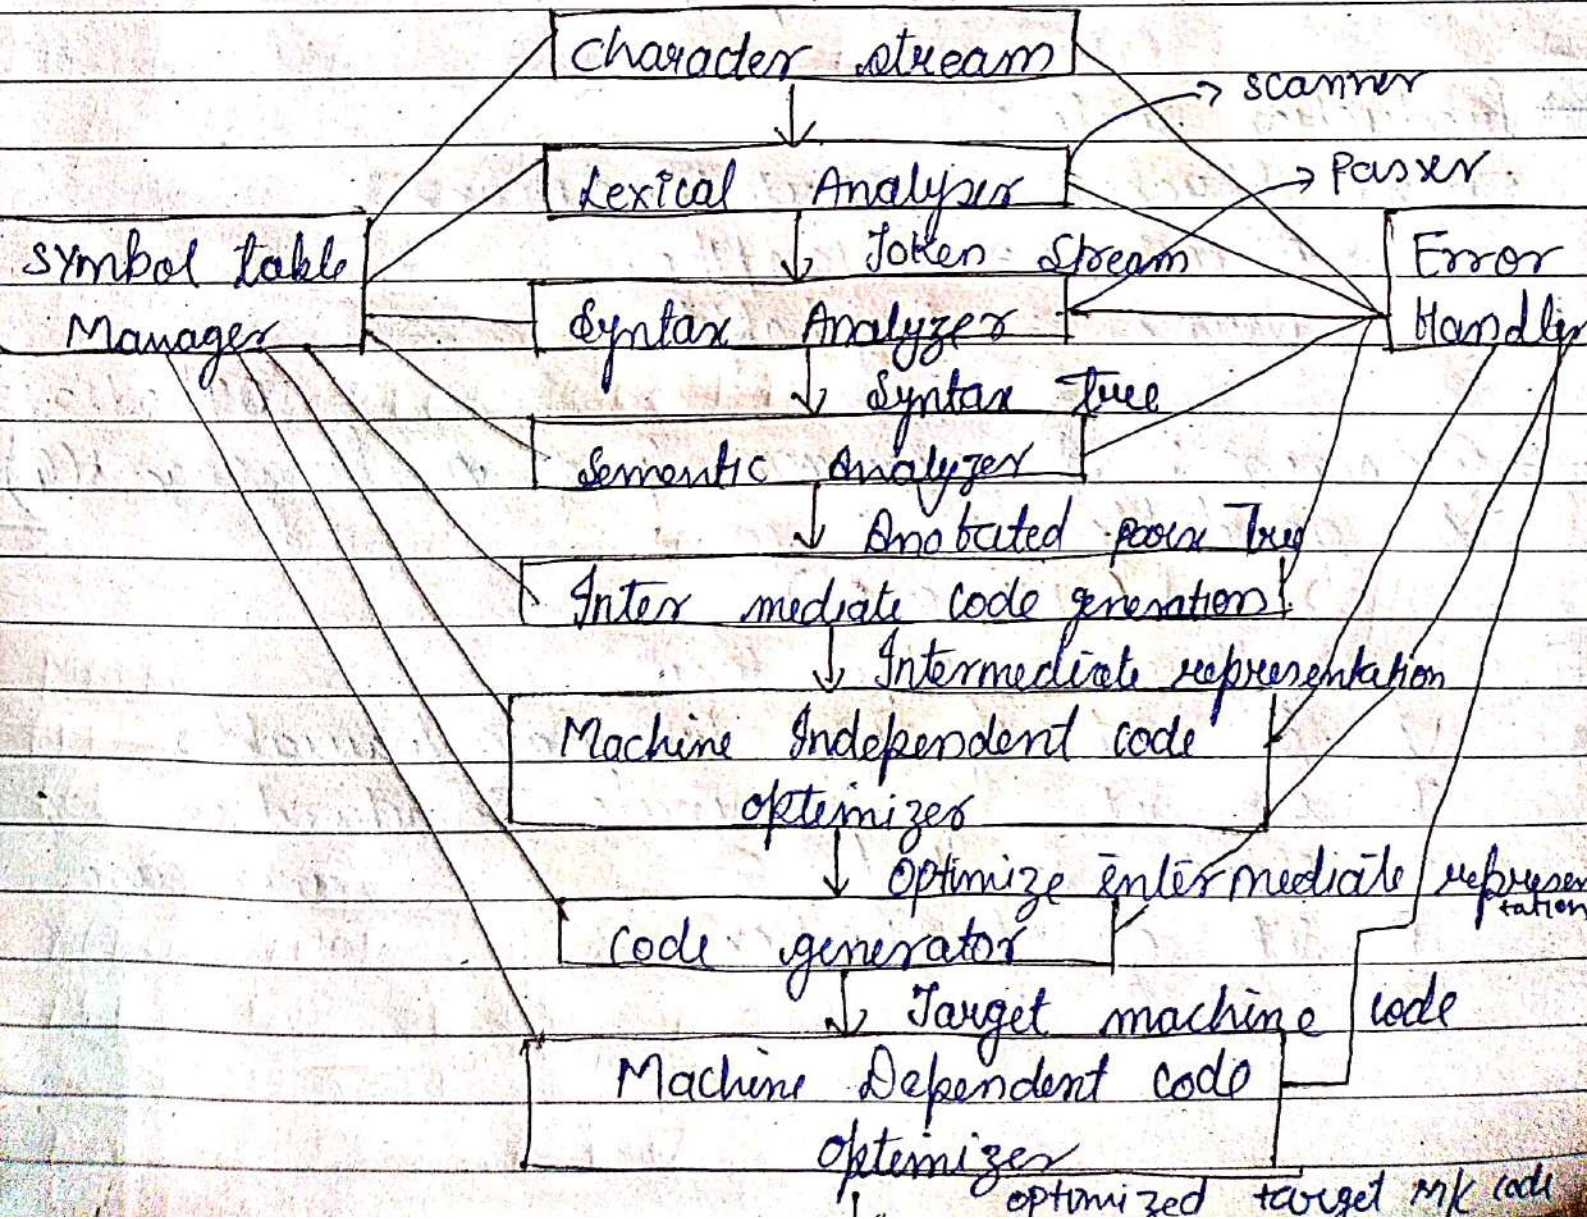 Character stream
scanner
Lexical Analyser
Parser
Token Stream
Symbol table
Manager
Error
Handler
Syntax Analyzer
Syntax Tree
Sementic Analyzer
Anotated parse Tree
Inter mediate code generation
Intermediate representation
Machine Independent code
optimizer
Optimize intermediate represen
tation
Code generator
Target machine code
Machine Dependent code
optimizer
optimized target m/c code